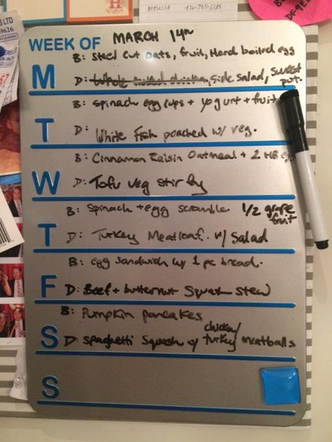 WEEK OF MARCH 14th
M
B: Steel cut oats, fruit, Hard boiled egg
D: Side Salad, Sweet pot.
T
B: Spinach egg cups + yogurt + fruit
D: White Fish poached w/ veg.
W
B: Cinnamon Raisin Oatmeal + 2 HB
D: Tofu Veg Stir fry
T
B: Spinach + egg scramble 1/2 grapefruit
D: Turkey Meatloaf w/ Salad
F
B: egg Sandwich w/ 1 pc bread.
D: Beef + butternut Squash stew
S
B: Pumpkin pancakes
D: spaghetti Squash w/ chicken/turkey meatballs
S